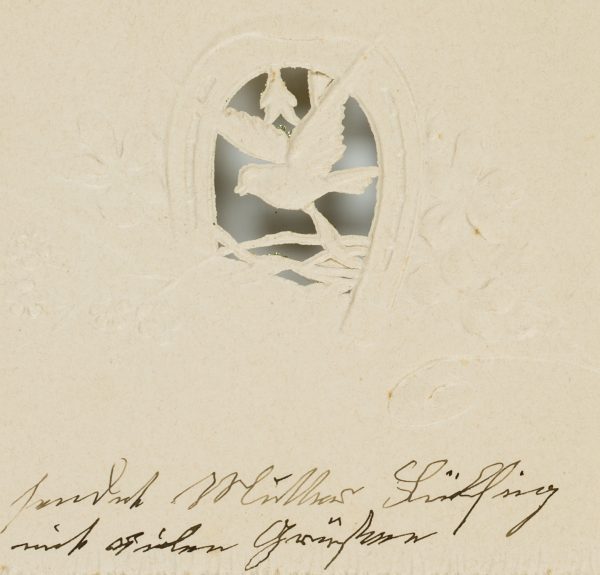 sendet Mutter
mit vielen Grüßen